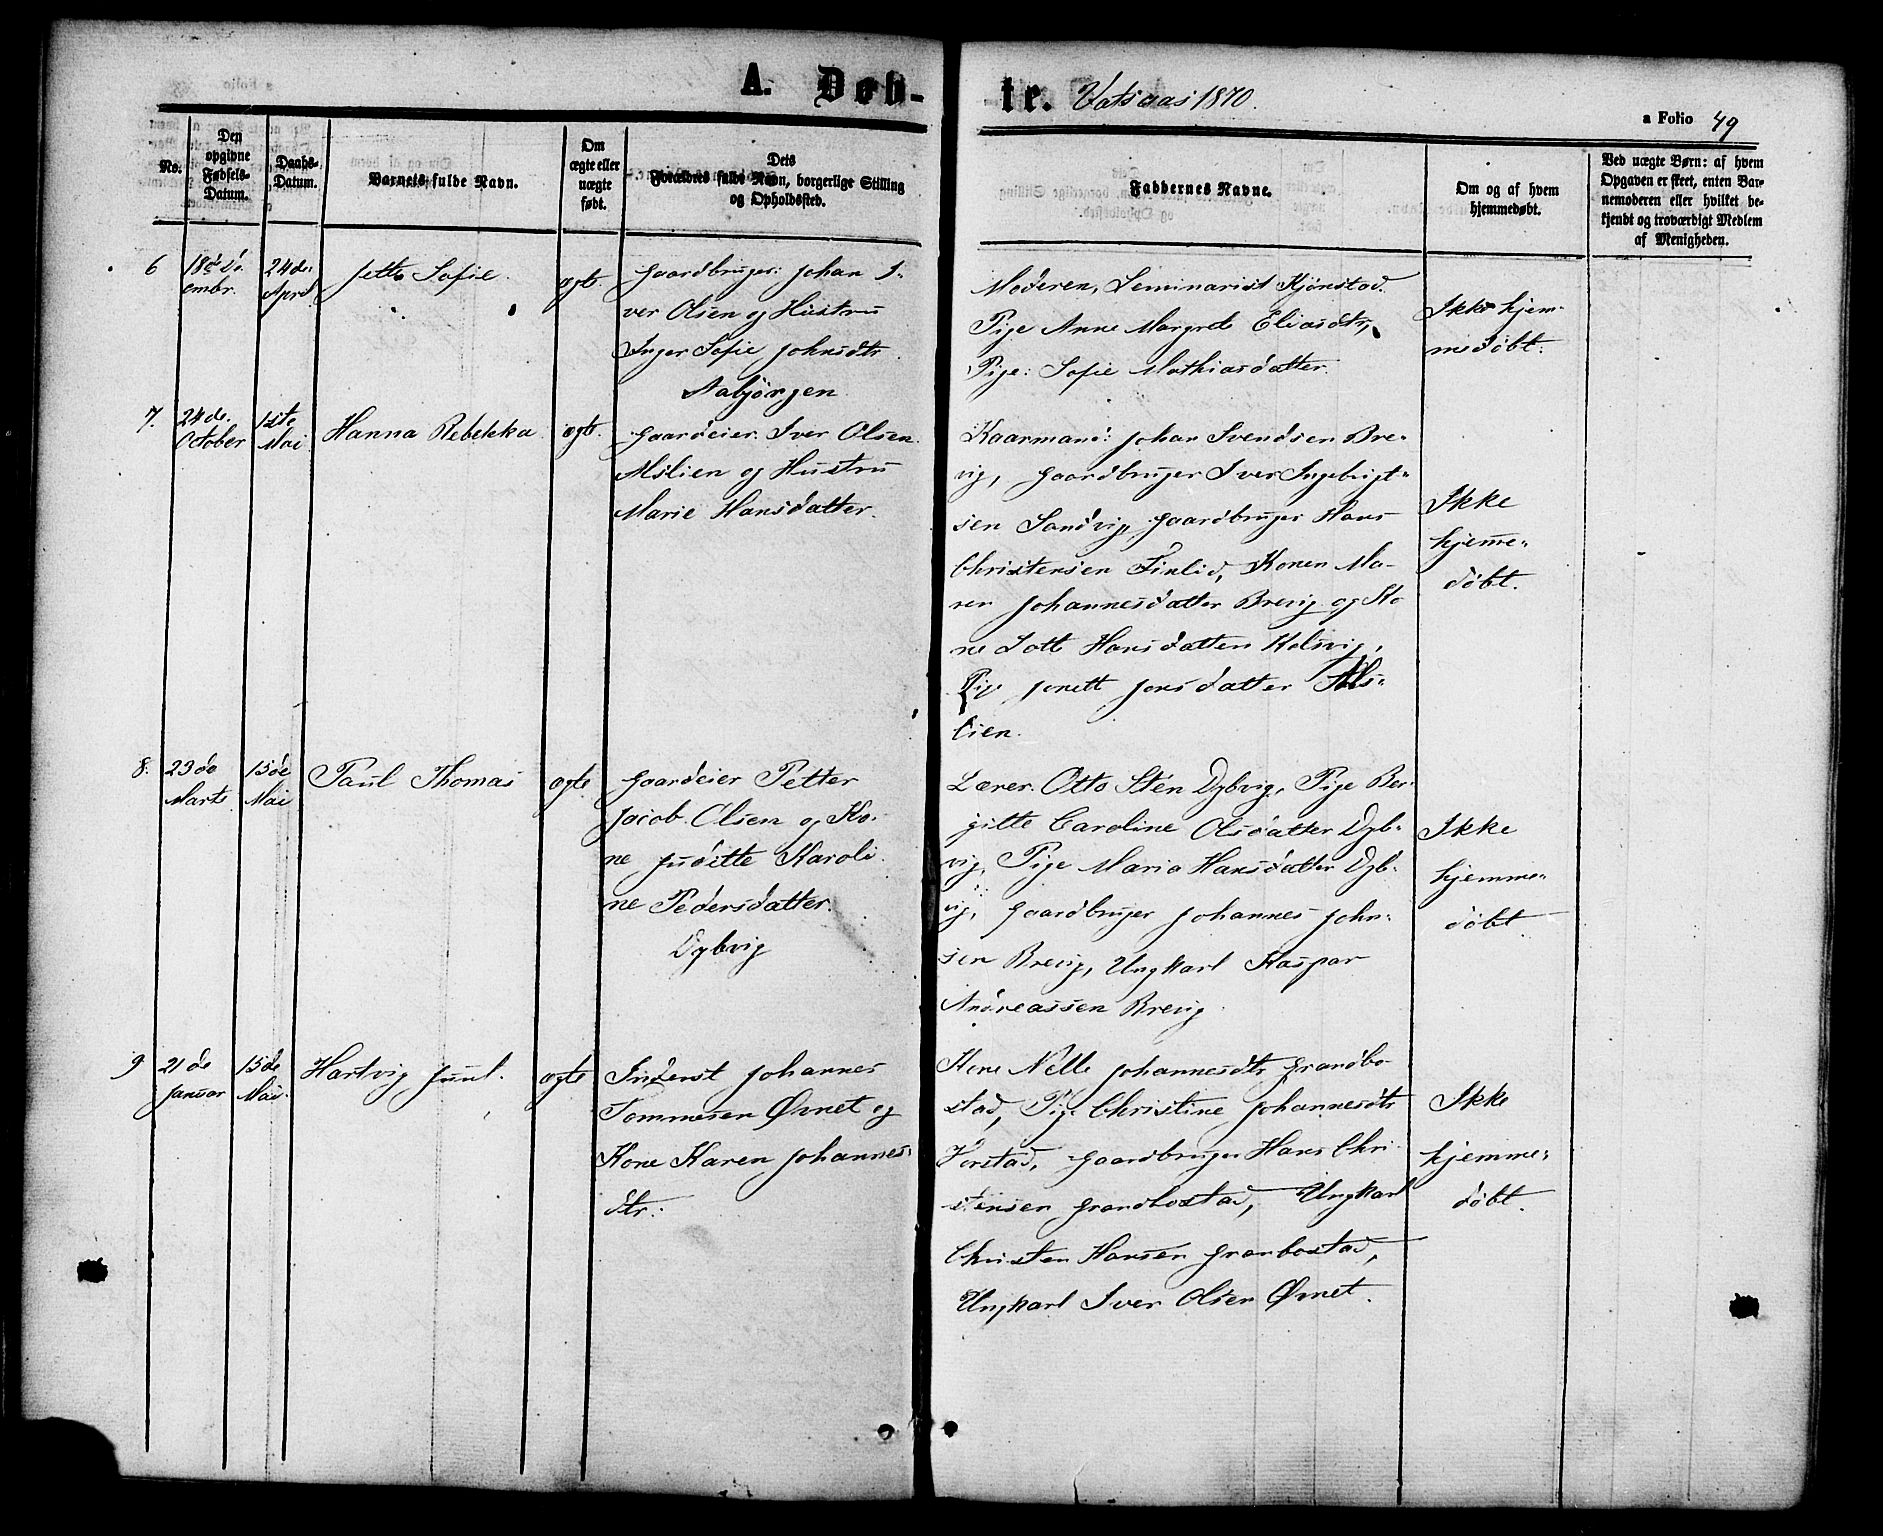 A. Døb-
te. 1870.
a Folio 49
No.
Den opgivne Fødsels-Datum.
Daabs-Datum.
Barnets fulde Navn.
Om ægte eller uægte født.
Dets Forældres fulde Navn, borgerlige Stilling og Opholdssted.
Faddernes Navne.
Om og af hvem hjemmedøbt.
Ved uægte Børn: af hvem Opgaven er skeet, enten Barnemoderen eller hvilket bekjendt og troværdigt Medlem af Menigheden.
6
24de April
Jette Sofie.
ægt.
Gaardbruger: Johan I-
ver Olsen og Hustru
Inger Sofie Johnsdtr.
Moderen, Seminarist Kjönstad.
Pige Anne Margrete Eliasdtr,
Pige: Sofie Mathiasdatter.
Ikke hjem-
medöbt.
7.
24de. October
1ste Mai
Hanna Rebekka.
ægt.
Gaardeier. Iver Olsen.
Alslien og Hustru
Marie Hansdatter.
Kaarmand: Johan Svendsen Bre-
vig, Gaardbruger Iver Ingebrigt-
sen Sandvig, Gaardbruger Hans
Christensen Finlid, Konen Ma-
ren Johannesdatter Brevig og Ko
ne Lotte Hansdatter Kolsvig,
Pige Jonett Jonsdatter Als-
lien.
Ikke
hjemme-
döbt.
8.
23de Marts
15de Mai
Paul Thomas
ægte
Gaardeier Petter
Jacob Olsen og Ko-
ne Juditte Karoli-
ne Pedersdatter.
Dybvig
Lærer. Otto Sten Dybvig, Pige Ber-
gitte Caroline Olsdatter Dyb-
vig, Pige Maria Hansdatter Dyb-
vig, Gaardbruger Johannes John-
sen Brevig, Ungkarl Kaspar
Andreassen Brevig.
Ikke
hjemme-
döbt
9
21de Januar
15de Mai.
Hartvig Juul.
ægte
Inderst Johannes
Tommesen Ørnet og
Kone Karen Johannes-
dtr.
Kone Nelle Johannesdtr Grandbo-
stad, Pige Christine Johannesdtr
Vorstad, Gaardbruger Hans Chri-
stensen Grandbostad, Ungkarl
Christen Hansen Granbostad,
Ungkarl Iver Olsen Ørnet.
Ikke
hjemme-
döbt.